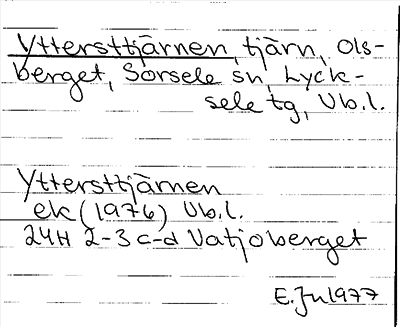 Yttersttjärnen, tjärn, Ols-
berget, Sorsele sn, Lyck-
sele tg, Vb.l.
Yttersttjärnen
ek (1976) Vb.l.
24H 2-3 c-d Vatjoberget
E.Ju 1977